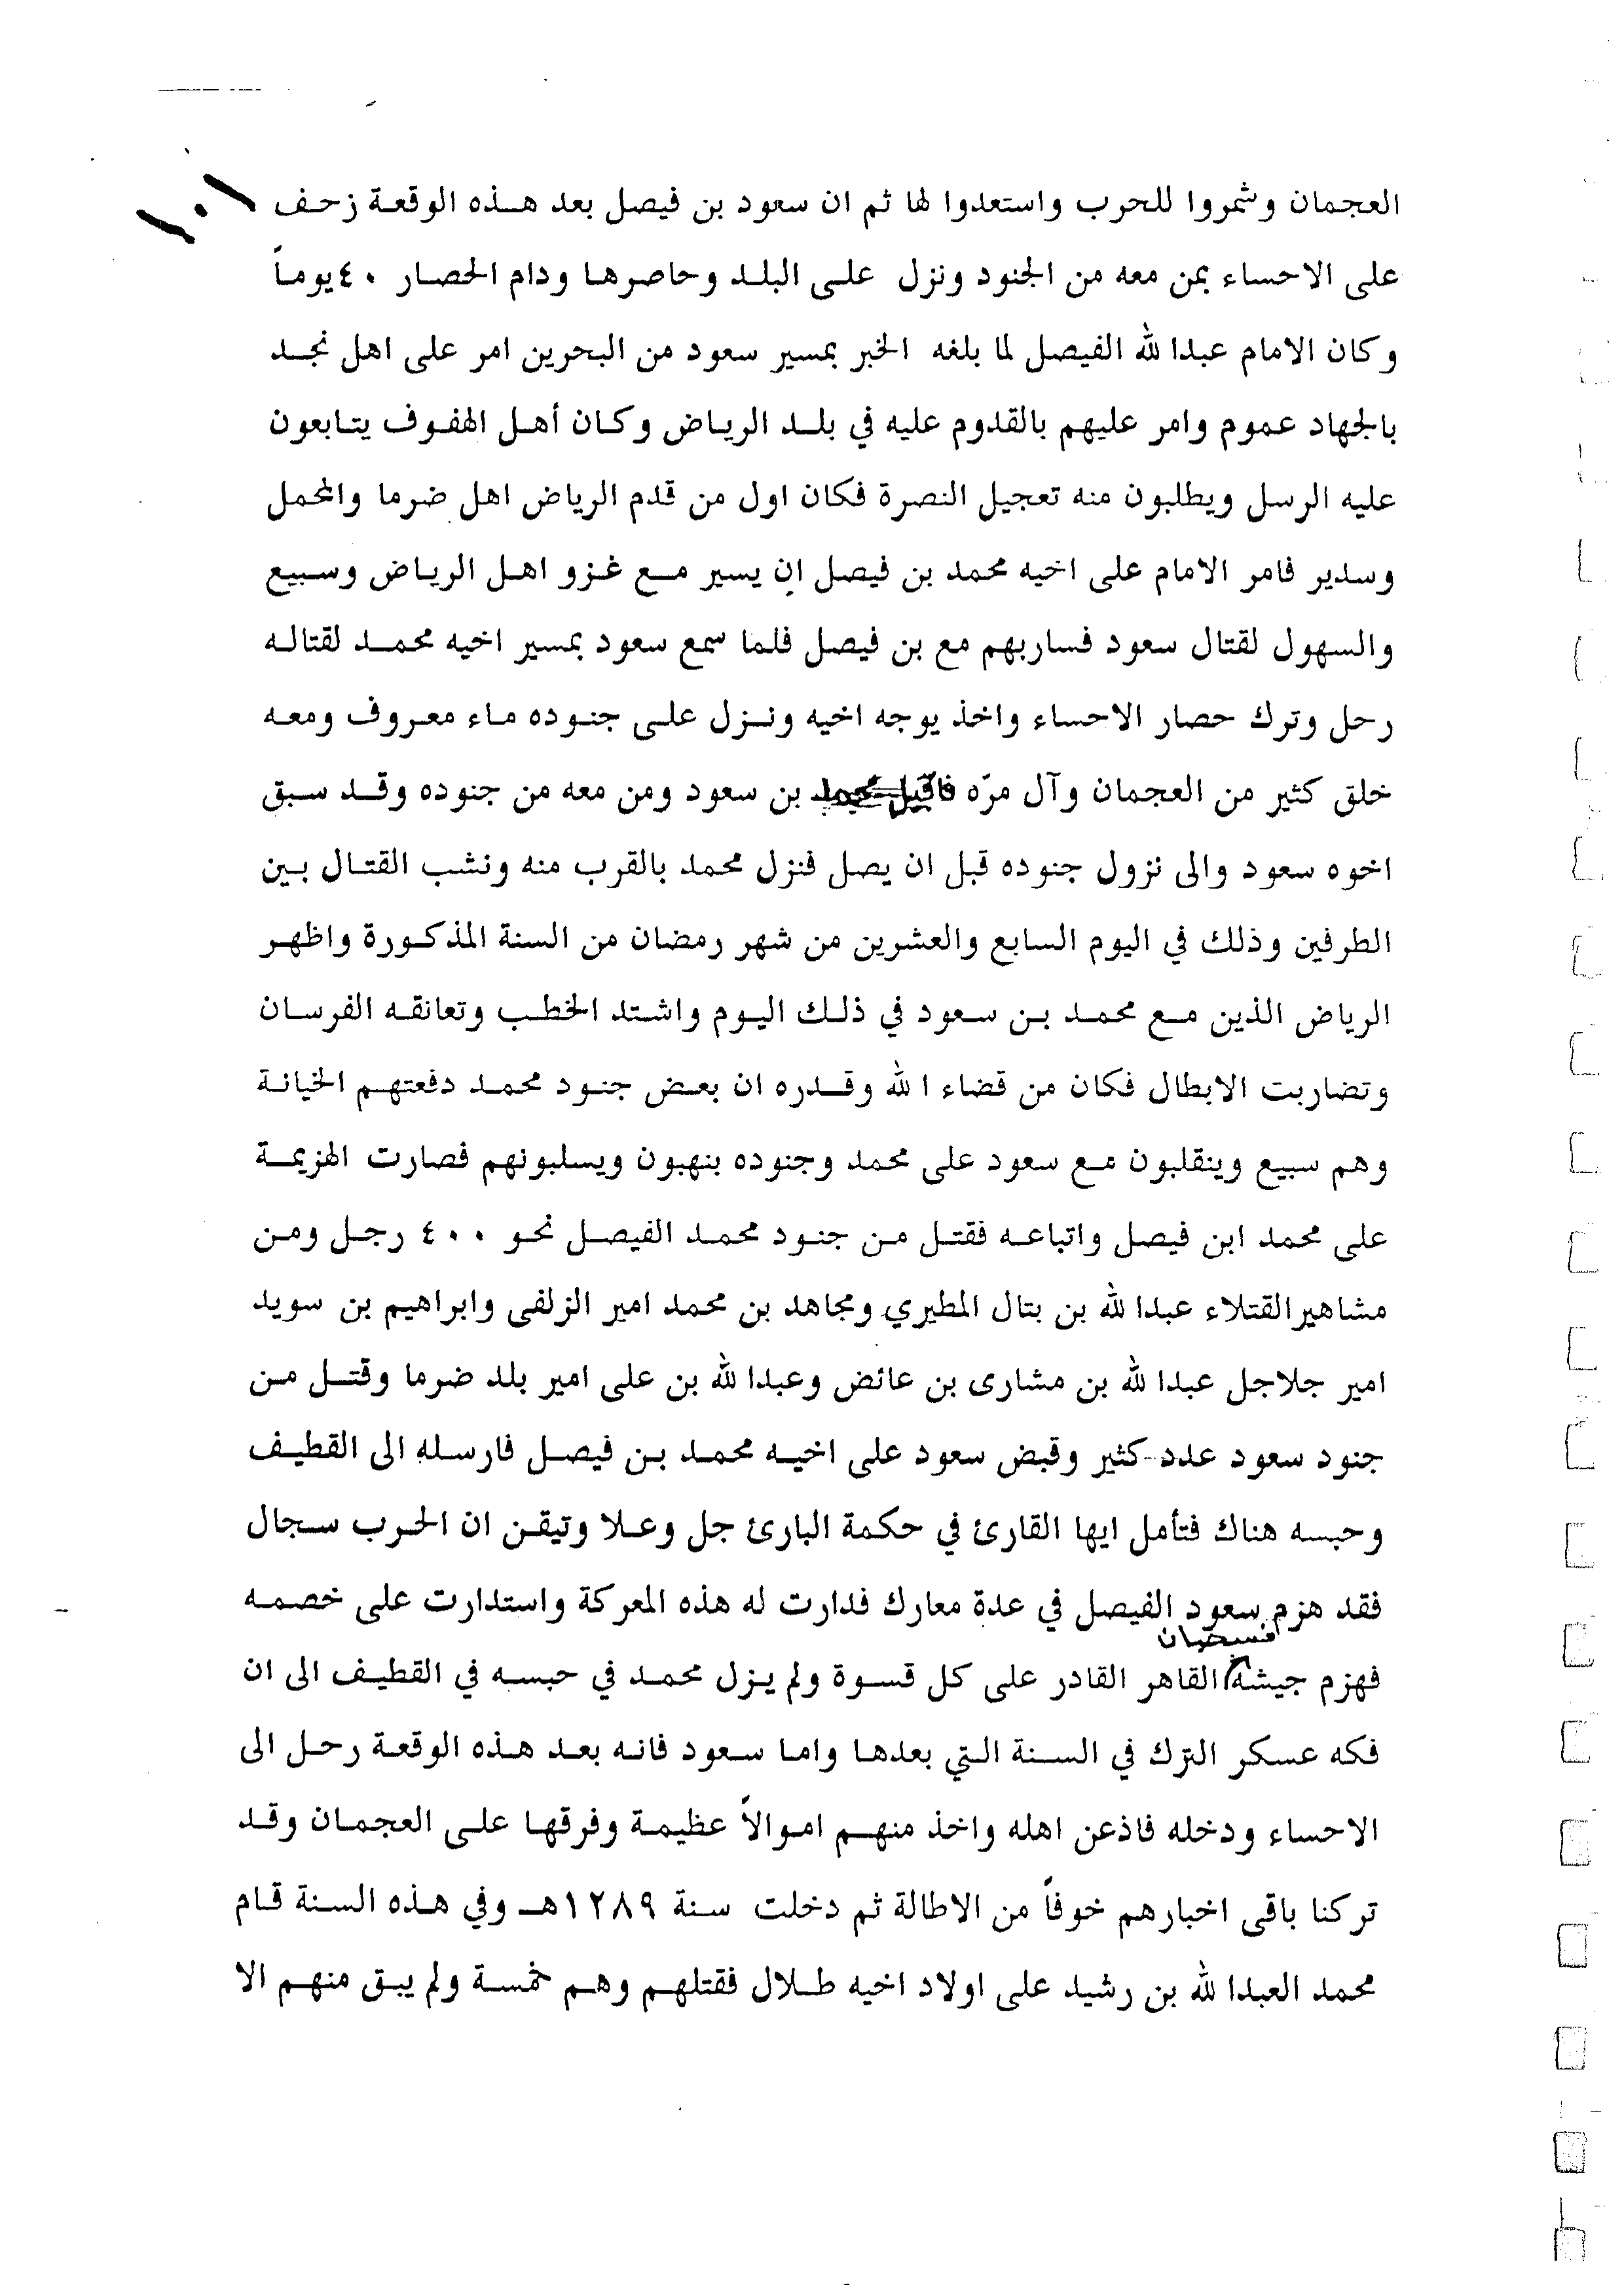 ١٠١
العجمان وشمروا للحرب واستعدوا لها ثم ان سعود بن فيصل بعد هذه الوقعة زحف
على الاحساء بمن معه من الجنود ونزل على البلد وحاصرها ودام الحصار ٤٠ يوماً
وكان الامام عبدالله الفيصل لما بلغه الخبر بمسير سعود من البحرين امر على اهل نجد
بالجهاد عموم وامر عليهم بالقدوم عليه في بلد الرياض وكان أهل الهفوف يتابعون
عليه الرسل ويطلبون منه تعجيل النصرة فكان اول من قدم الرياض اهل ضرما والمحمل
وسدير فامر الامام على اخيه محمد بن فيصل ان يسير مع غزو اهل الرياض وسبيع
والسهول لقتال سعود فساربهم مع بن فيصل فلما سمع سعود بمسير اخيه محمد لقتاله
رحل وترك حصار الاحساء واخذ يوجه اخيه ونزل على جنوده ماء معروف ومعه
خلق كثير من العجمان وآل مرّه فاقبل محمد بن سعود ومن معه من جنوده وقد سبق
اخوه سعود والى نزول جنوده قبل ان يصل فنزل محمد بالقرب منه ونشب القتال بين
الطرفين وذلك في اليوم السابع والعشرين من شهر رمضان من السنة المذكورة واظهر
الرياض الذين مع محمد بن سعود في ذلك اليوم واشتد الخطب وتعانقه الفرسان
وتضاربت الابطال فكان من قضاء الله وقدره ان بعض جنود محمد دفعتهم الخيانة
وهم سبيع وينقلبون مع سعود على محمد وجنوده بنهبون ويسلبونهم فصارت الهزيمة
على محمد ابن فيصل واتباعه فقتل من جنود محمد الفيصل نحو ٤٠٠ رجل ومن
مشاهيرالقتلاء عبدالله بن بتال المطيري ومجاهد بن محمد امير الزلفى وابراهيم بن سويد
امير جلاجل عبدالله بن مشارى بن عائض وعبدالله بن على امير بلد ضرما وقتل من
جنود سعود عدد كثير وقبض سعود على اخيه محمد بن فيصل فارسله الى القطيف
وحبسه هناك فتأمل ايها القارئ في حكمة البارئ جل وعلا وتيقن ان الحرب سجال
فقد هزم سعود الفيصل في عدة معارك فدارت له هذه المعركة واستدارت على خصمه
فسبحان
فهزم جيشه القاهر القادر على كل قسوة ولم يزل محمد في حبسه في القطيف الى ان
فكه عسكر الترك في السنة التي بعدها واما سعود فانه بعد هذه الوقعة رحل الى
الاحساء ودخله فاذعن اهله واخذ منهم اموالاً عظيمة وفرقها على العجمان وقد
تركنا باقى اخبارهم خوفاً من الاطالة ثم دخلت سنة ١٢٨٩هـ وفي هذه السنة قام
محمد العبدالله بن رشيد على اولاد اخيه طلال فقتلهم وهم خمسة ولم يبق منهم الا